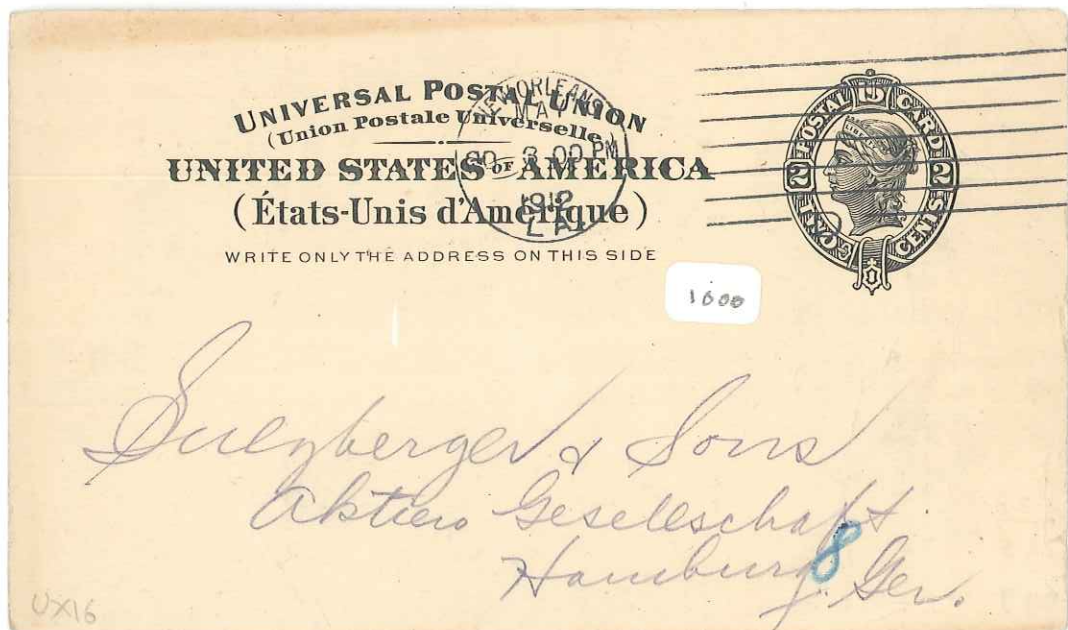 UNIVERSAL POSTAL UNION
(Union Postale Universelle)
UNITED STATES OF AMERICA
(États-Unis d'Amérique)
WRITE ONLY THE ADDRESS ON THIS SIDE
NEW ORLEANS
MAY
3 00 PM
1912
LA
POSTAL CARD
U S
2 2
TWO CENTS
1000
Sulzberger & Sons
Aktien Gesellschaft
Hamburg. Ger.
8
UX16